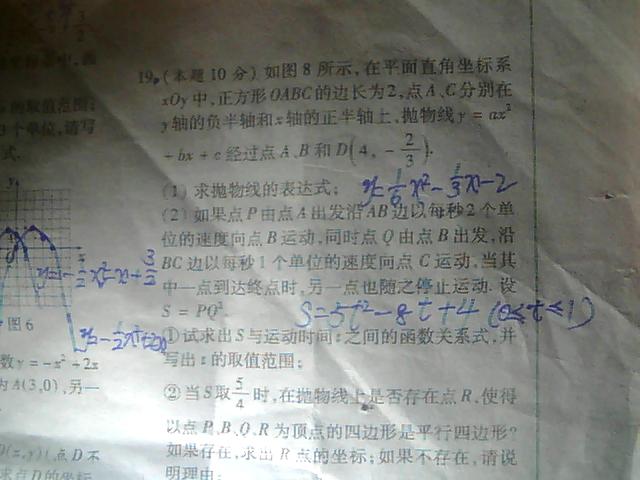 19.(本题 10 分) 如图 8 所示,在平面直角坐标系
xOy 中,正方形 OABC 的边长为 2,点 A、C 分别在
y 轴的负半轴和 x 轴的正半轴上,抛物线 y = ax²
+ bx + c 经过点 A、B 和 D(4, -2/3).
(1) 求抛物线的表达式; y=1/6x²-1/3x-2
(2) 如果点 P 由点 A 出发沿 AB 边以每秒 2 个单
位的速度向点 B 运动,同时点 Q 由点 B 出发,沿
BC 边以每秒 1 个单位的速度向点 C 运动,当其
中一点到达终点时,另一点也随之停止运动. 设
S = PQ² S=5t²-8t+4 (0≤t≤1)
①试求出 S 与运动时间 t 之间的函数关系式,并
写出 t 的取值范围;
②当 S 取 5/4 时,在抛物线上是否存在点 R,使得
以点 P、B、Q、R 为顶点的四边形是平行四边形?
如果存在,求出 R 点的坐标;如果不存在,请说
明理由;
的取值范围;
3个单位,请写
式.
图 6
数 y = -x² + 2x
为 A(3,0),另一
D(x,y)(点 D 不
求点 D 的坐标